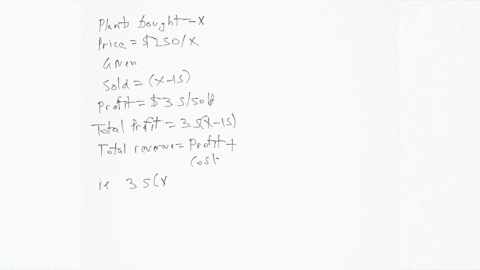 Plants Bought = X
Price = $250/X
Given
Sold = (X-15)
Profit = $35/sold
Total Profit = 35(X-15)
Total revenue = Profit +
Cost
ie 35(X